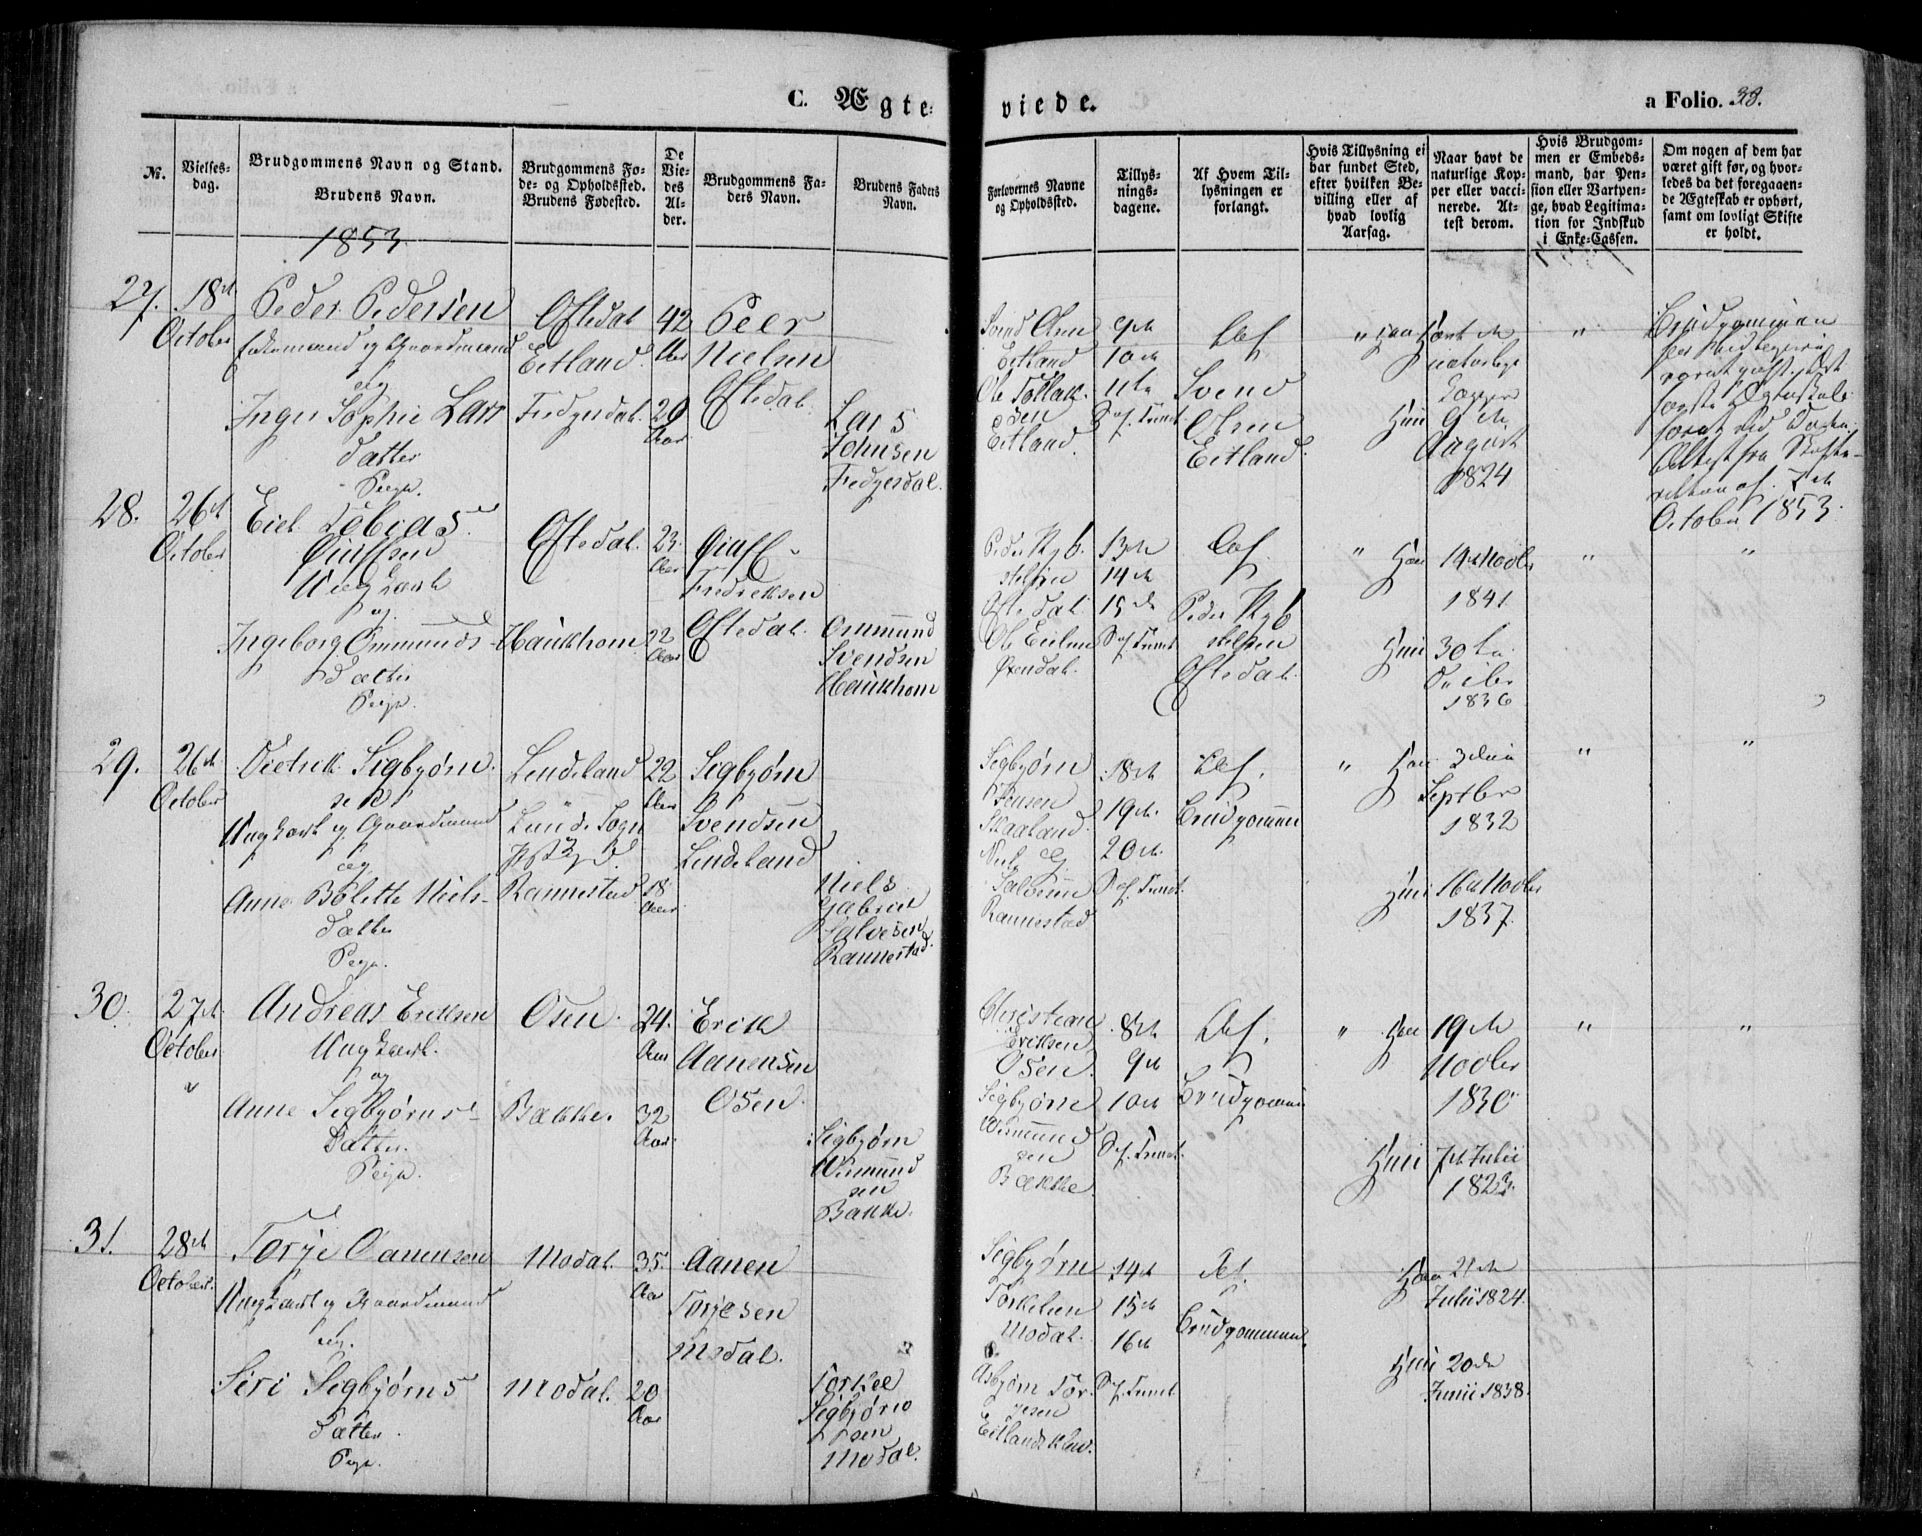 C. Ægte- viede. a Folio. 38.
No.
Vielses-
dag.
Brudgommens Navn og Stand.
Brudens Navn.
Brudgommens Fø-
de- og Opholdssted.
Brudens Fødested.
De
Vie-
des
Al-
der.
Brudgommens Fa-
ders Navn.
Brudens Faders
Navn.
Forlovernes Navne
og Opholdssted.
Tillys-
nings-
dagene.
Af Hvem Til-
lysningen er
forlangt.
Hvis Tillysning ei
har fundet Sted,
efter hvilken Be-
villing eller af
hvad lovlig
Aarsag.
Naar havt de
naturlige Kop-
per eller vacci-
nerede. At-
test derom.
Hvis Brudgom-
men er Embeds-
mand, har Pen-
sion eller Vartpen-
ge, hvad Legitima-
tion for Indskud
i Enke-Cassen.
Om nogen af dem har
været gift før, og hvor-
ledes da det foregaaen-
de Ægteskab er ophørt,
samt om lovligt Skifte
er holdt.
1853
27. 18de
October
Peder Pedersen
Enkemand og Gaardmand
og
Inger Sophie Lars
Datter
Pige.
Oftedal
Eitland
Fedgersdal.
42
Aar
20
Aar
Peer
Nielsen
Oftedal.
Lars
Johnsen
Fedgersdal.
Svend Olsen
Eitland
Ole Tollak
sen
Eitland.
9de
10de
11te
S. e. Trinit.
Svend
Olsen
Eitland.
" Han Havt de
naturlige
Kopper
Hun 9de
August
1824
"
Brudgommen
været gift. Det
første Ægteskab
Attest fra Skifte-
retten af 7de
October 1853.
28. 26de
October
Eiel Tobias
Olaffsen
Ungkarl
og
Ingeborg Ommunds
Datter
Pige.
Oftedal.
Haukhom
23
Aar
22
Aar
Olaff
Fredriksen
Oftedal.
Ommund
Svendsen
Haukhom
Oftedal
13de
14de
15de
S. e. Trinit
Oftedal.
" Han 14de Novbr
1841
Hun 30te
1836
" "
29. 26de
October
Didrik Sigbjørn
sen
Ungkarl og Gaardmand
og
Anne Bolette Niels-
Datter
Pige.
Lindeland
Lunde Sogn
Rannestad
22
Aar
18
Aar
Sigbjørn
Svendsen
Lindeland
Niels
Gabriel
Salvesen
Rannestad.
Sigbjørn
Jensen
Skaaland
Salvesen
Rannestad
18de
19de
20de
S. e. Trinit.
Brudgommen
" Han 3die
Septbr
1832
Hun 16de Novbr
1837.
" "
30. 27de
October
"
Andreas Eriksen
Ungkarl.
og
Anne Sigbjørns
Datter
Pige.
Osen
Bakke.
24.
Aar
32
Aar
Erik
Aanensen
Osen.
Sigbjørn
Osmund
sen
Bakke.
Christian
Eriksen
Osen.
Sigbjørn
Osmund
sen
Bakke.
8de
9de
10de
S. e. Trinit.
Brudgommen
" Han 19de
Novbr
1830
Hun 7de Julii
1823.
" "
31. 28de
October.
Torje Aanensen
Ungkarl og Gaardmand
og.
Siri Sigbjørns
Datter
Pige.
Modal.
Modal.
35.
Aar
20
Aar
Aanen
Torjesen
Modal.
Torkel
Sigbjørn
sen
Modal.
Sigbjørn
Torkelsen
Modal.
Asbjørn Tor
jesen
14de
15de
16de
S. e. Trinit
Brudgommen.
Han 21de
Julii 1824.
Hun 20de
Junii 1838.